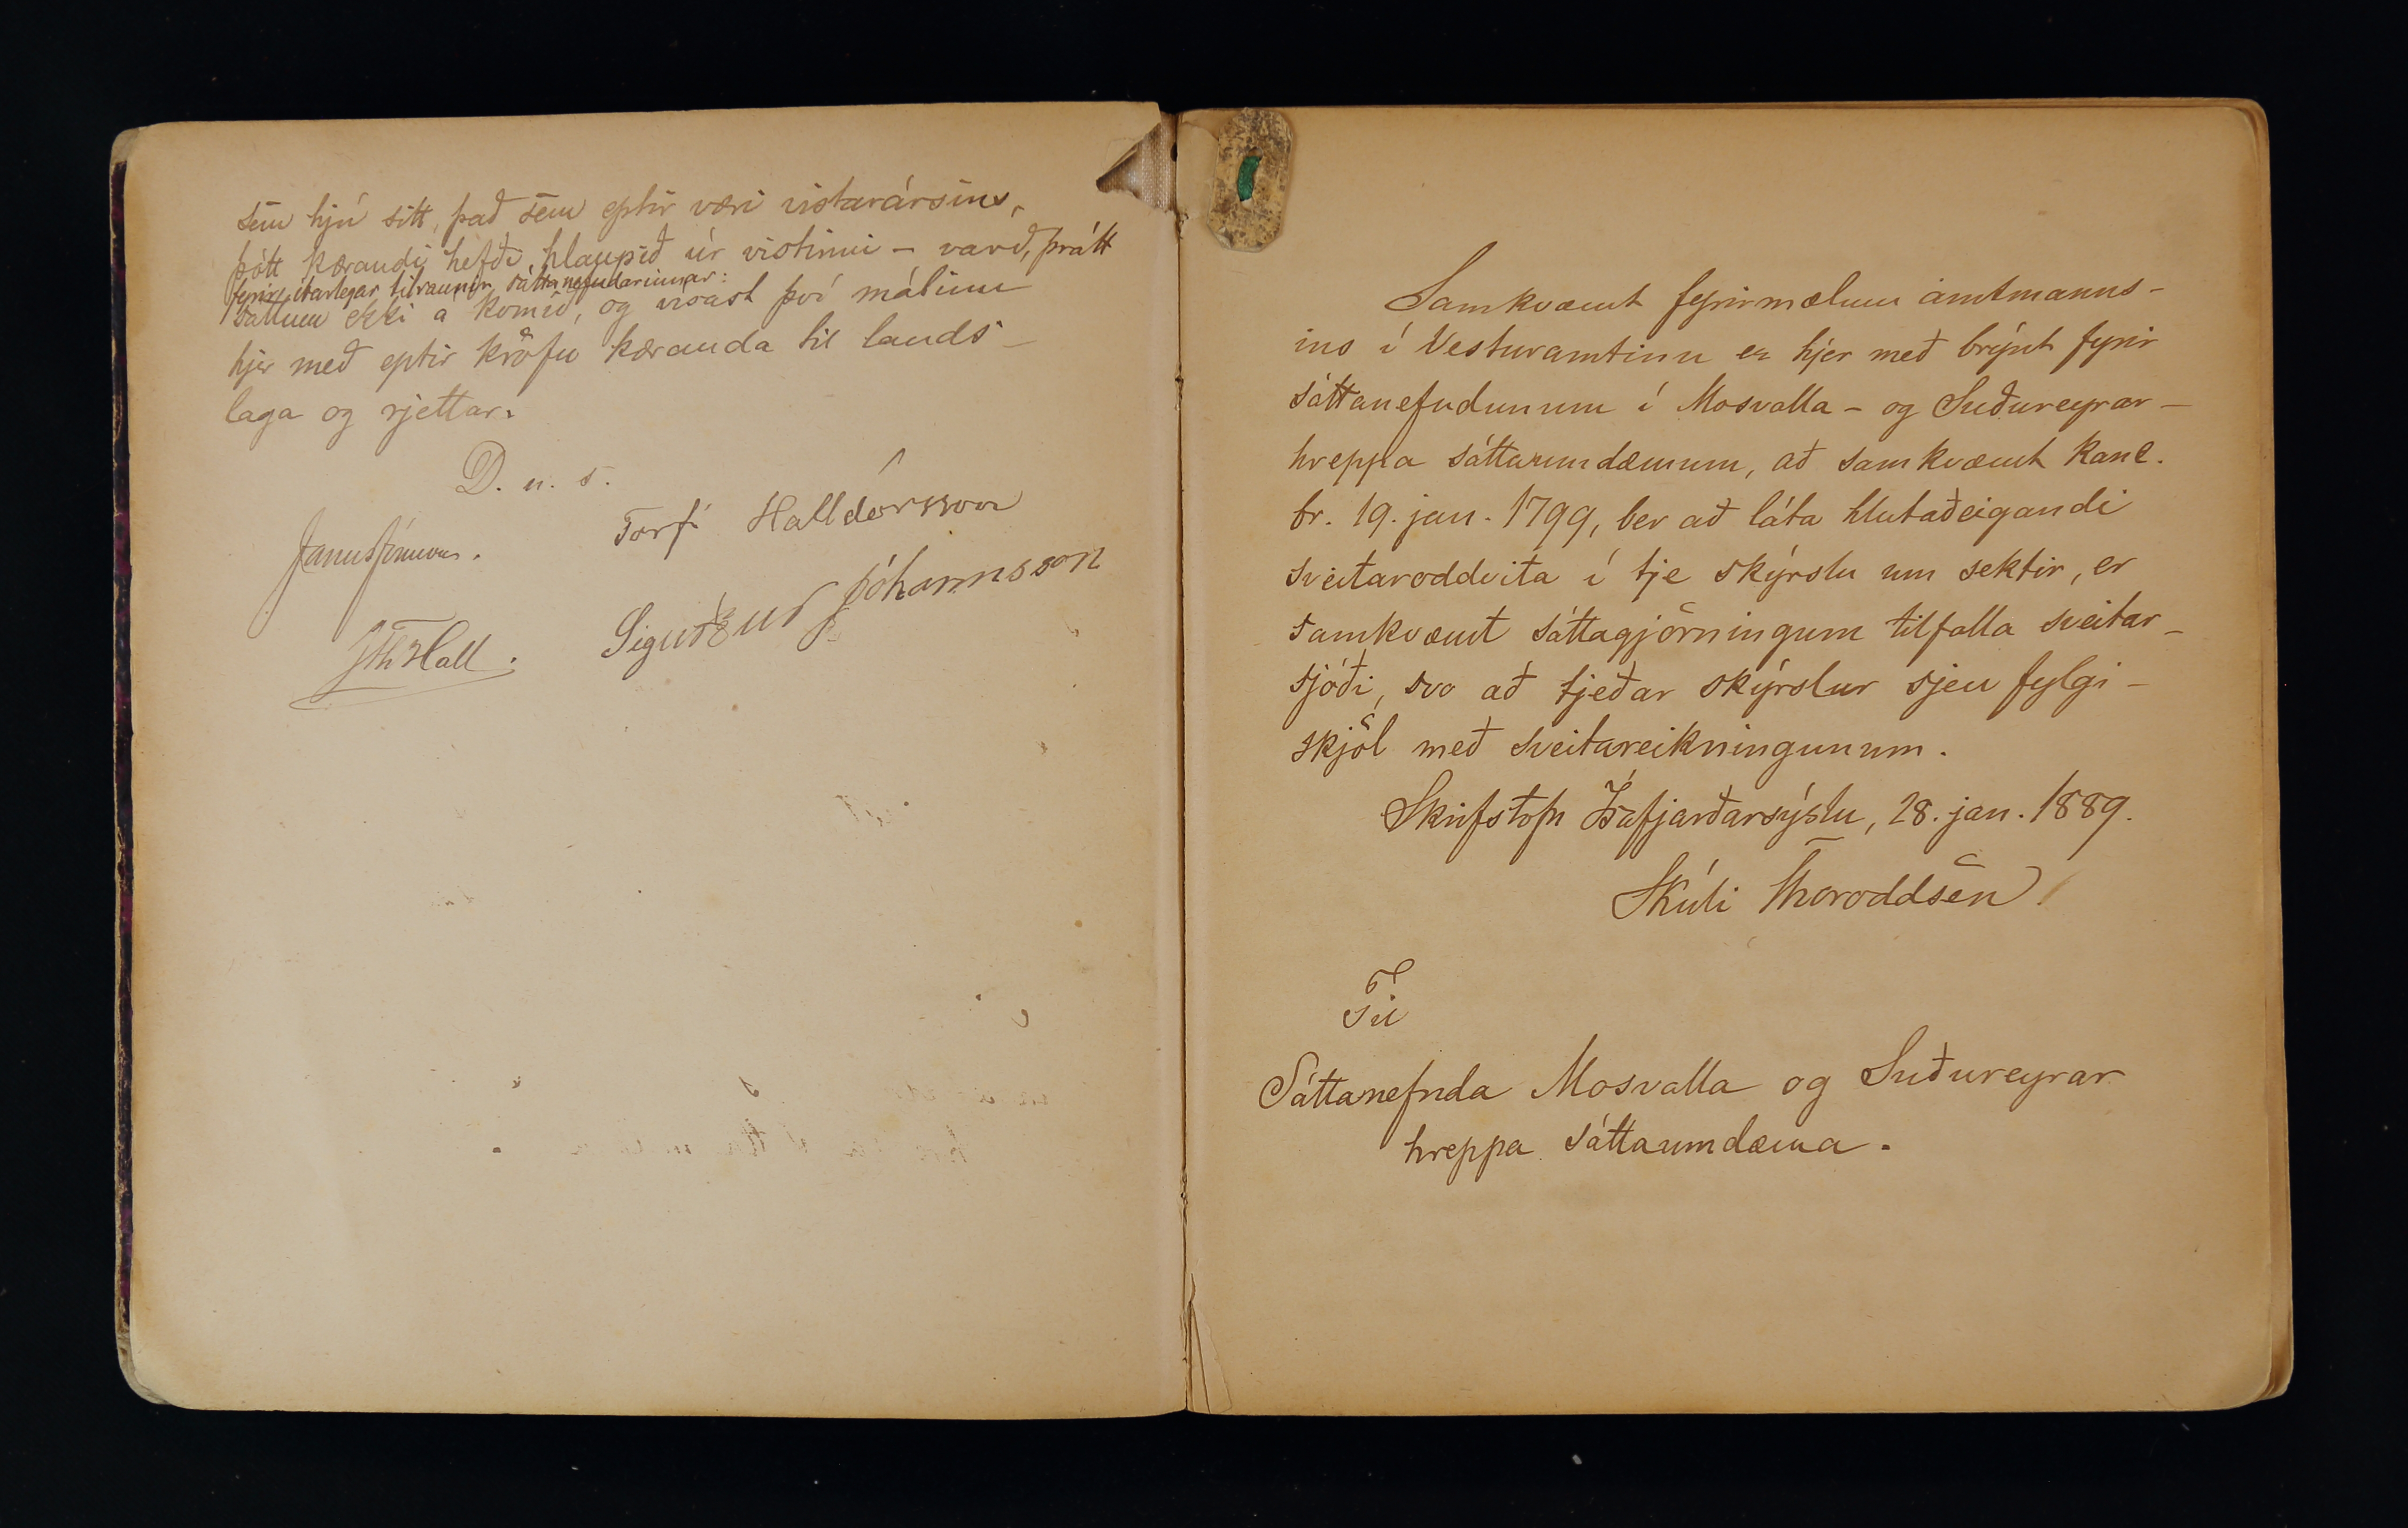 sem hjú sitt, það sem eptir væri vistarársins,
þótt kærandi hefði hlaupið úr vistinni – varð, þrátt
fyrir ítarlegar tilraunir sáttanefndarinnar:
sáttum ekki á komið, og vísast því málinu
hjer með eptir kröfu kæranda til lands-
laga og rjettar.
D. u. s.
Torfi Halldórsson
Janus Jónsson.
Sigurður Jóhannsson
JThHall.
Samkvæmt fyrirmælum amtmanns-
ins í Vesturamtinu er hjer með brýnt fyrir
sáttanefndunum í Mosvalla- og Suðureyrar-
hreppa sáttaumdæmum, að samkvæmt kanc.
br. 19. jan. 1799, ber að láta hlutaðeigandi
sveitaroddvita í tje skýrslu um sektir, er
samkvæmt sáttagjörningum tilfalla sveitar-
sjóði, svo að tjeðar skýrslur sjeu fylgi-
skjöl með sveitareikningunum.
Skrifstofu Ísafjarðarsýslu, 28. jan. 1889.
Skúli Thoroddsen
Til
Sáttanefnda Mosvalla og Suðureyrar
hreppa sáttaumdæma.